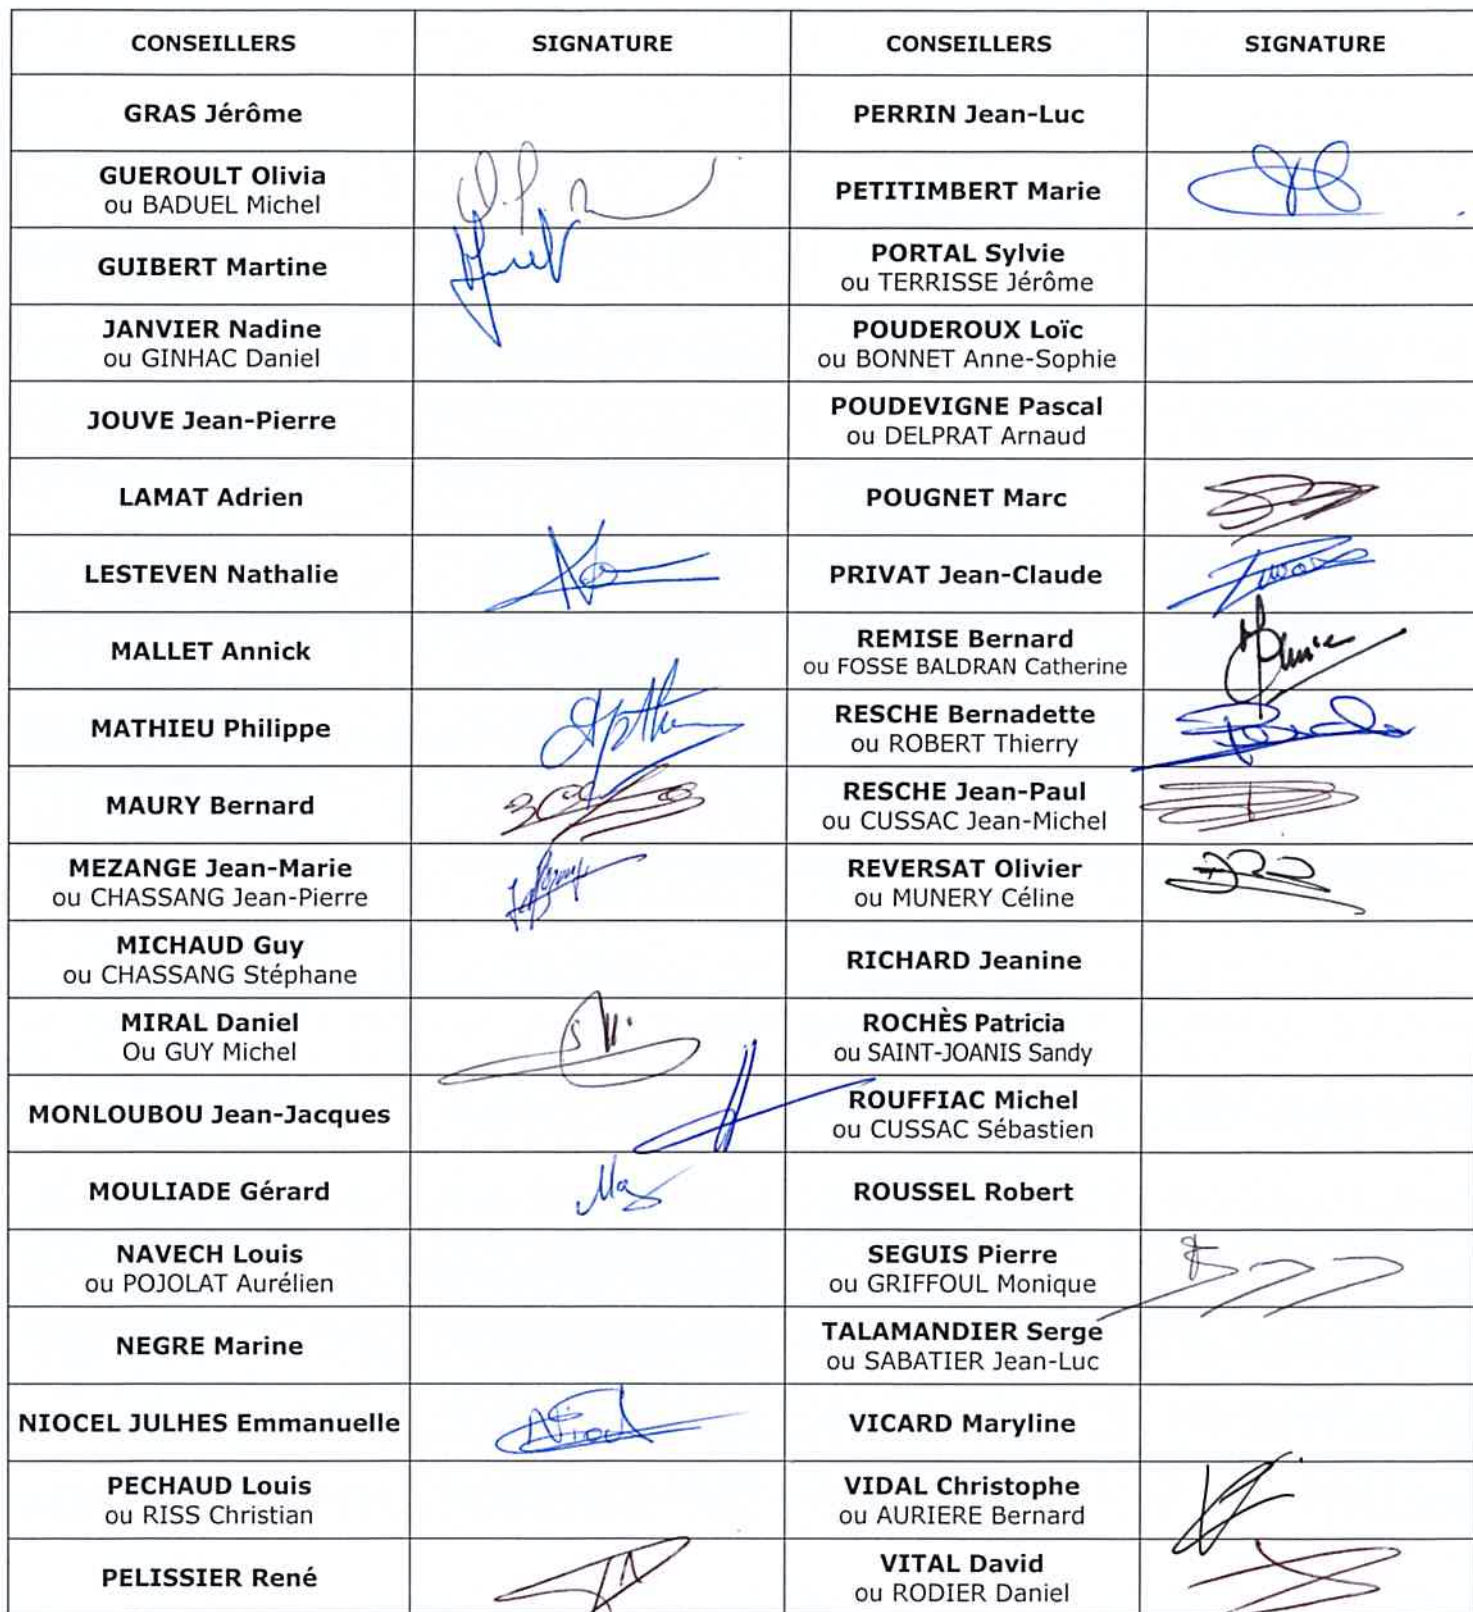 CONSEILLERS SIGNATURE CONSEILLERS SIGNATURE
GRAS Jérôme PERRIN Jean-Luc
GUEROULT Olivia
ou BADUEL Michel PETITIMBERT Marie
GUIBERT Martine PORTAL Sylvie
ou TERRISSE Jérôme
JANVIER Nadine
ou GINHAC Daniel POUDEROUX Loïc
ou BONNET Anne-Sophie
JOUVE Jean-Pierre POUDEVIGNE Pascal
ou DELPRAT Arnaud
LAMAT Adrien POUGNET Marc
LESTEVEN Nathalie PRIVAT Jean-Claude
MALLET Annick REMISE Bernard
ou FOSSE BALDRAN Catherine
MATHIEU Philippe RESCHE Bernadette
ou ROBERT Thierry
MAURY Bernard RESCHE Jean-Paul
ou CUSSAC Jean-Michel
MEZANGE Jean-Marie
ou CHASSANG Jean-Pierre REVERSAT Olivier
ou MUNERY Céline
MICHAUD Guy
ou CHASSANG Stéphane RICHARD Jeanine
MIRAL Daniel
Ou GUY Michel ROCHÈS Patricia
ou SAINT-JOANIS Sandy
MONLOUBOU Jean-Jacques ROUFFIAC Michel
ou CUSSAC Sébastien
MOULIADE Gérard ROUSSEL Robert
NAVECH Louis
ou POJOLAT Aurélien SEGUIS Pierre
ou GRIFFOUL Monique
NEGRE Marine TALAMANDIER Serge
ou SABATIER Jean-Luc
NIOCEL JULHES Emmanuelle VICARD Maryline
PECHAUD Louis
ou RISS Christian VIDAL Christophe
ou AURIERE Bernard
PELISSIER René VITAL David
ou RODIER Daniel